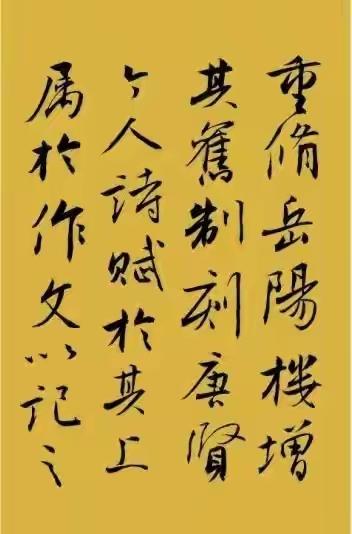 重脩岳陽樓增
其舊制刻唐賢
今人詩賦於其上
属於作文以記之